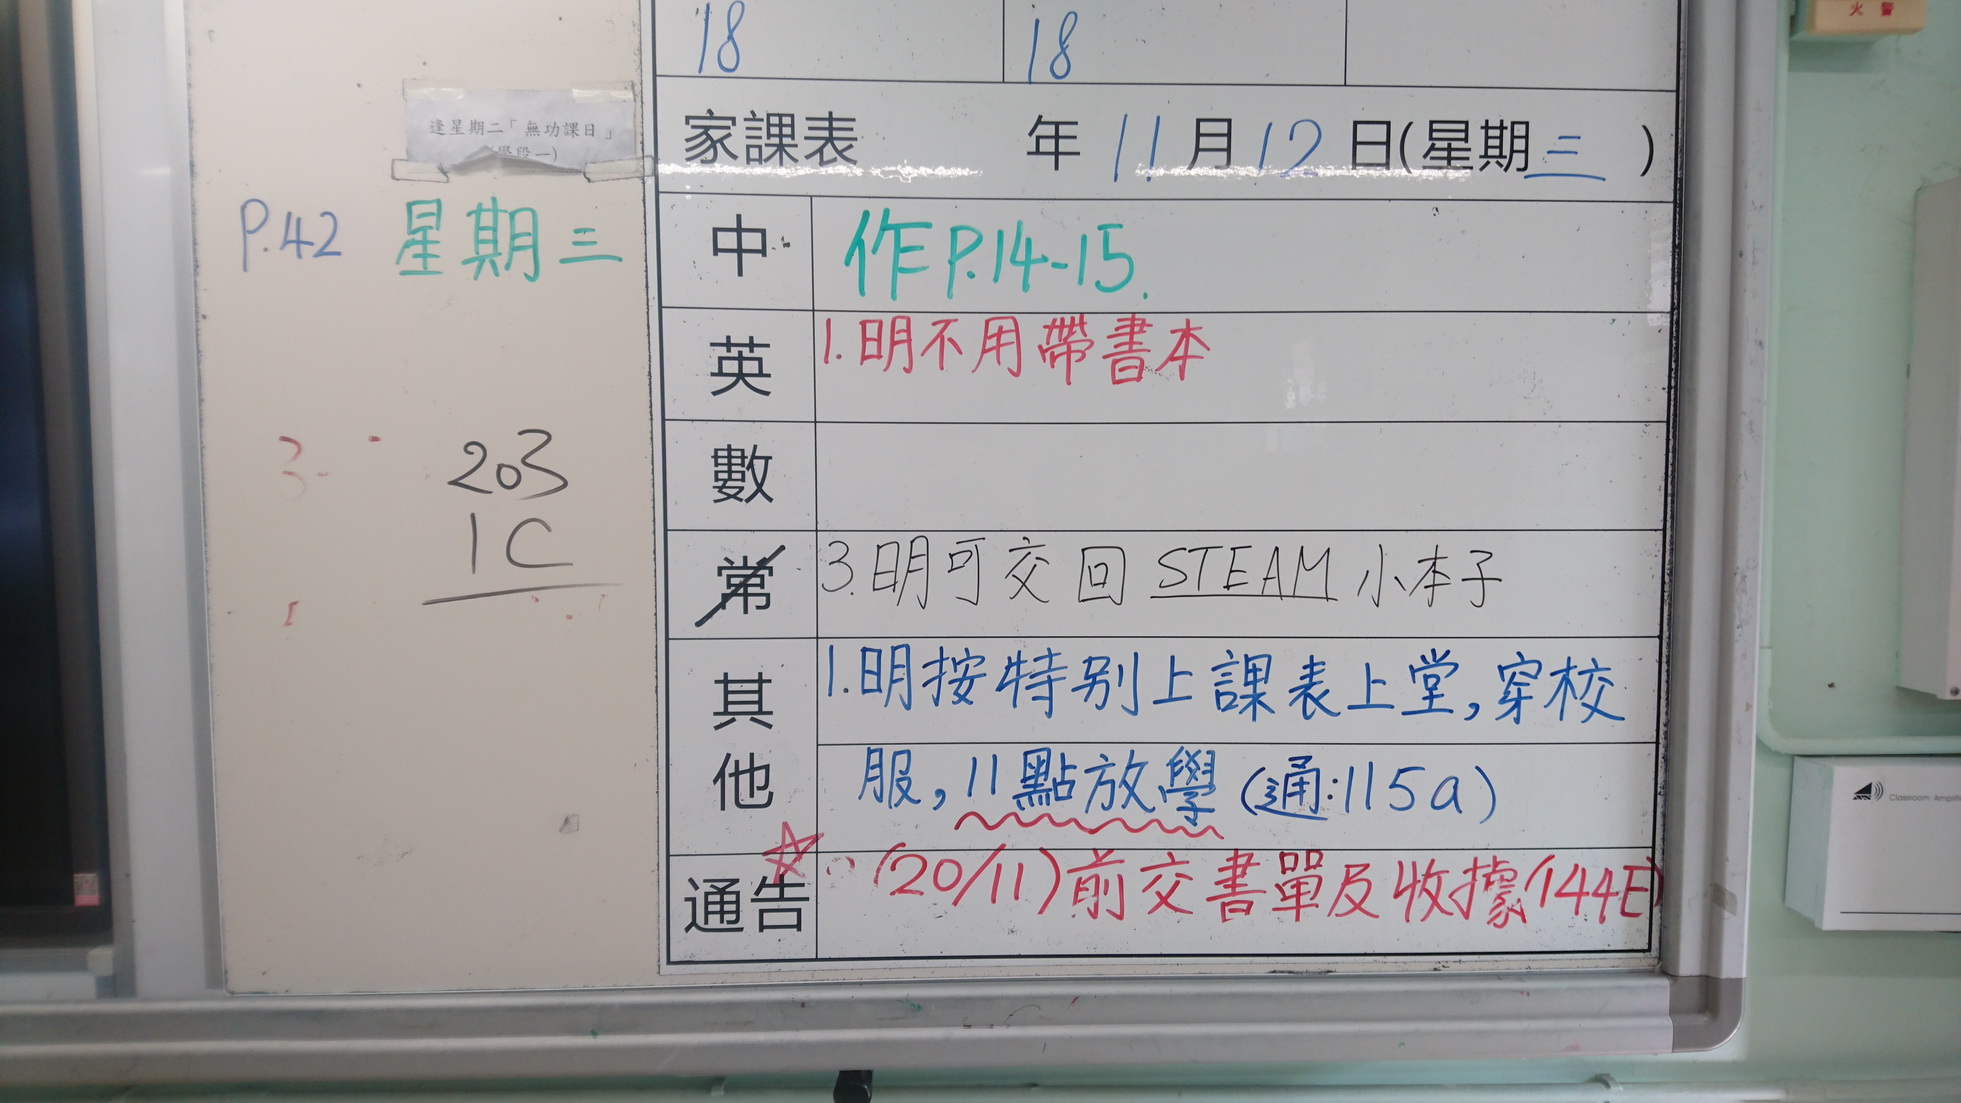 18 18
火警
逢星期二「無功課日」
學段一)
家課表 年 11 月 12 日(星期三 )
P.42 星期三
中 作P.14-15.
英 1.明不用帶書本
數
203
1C
常 3.明可交回 STEAM 小本子
其他 1.明按特別上課表上堂,穿校
服,11點放學(通:115a)
通告 ☆(20/11)前交書單及收據(144E)
Classroom